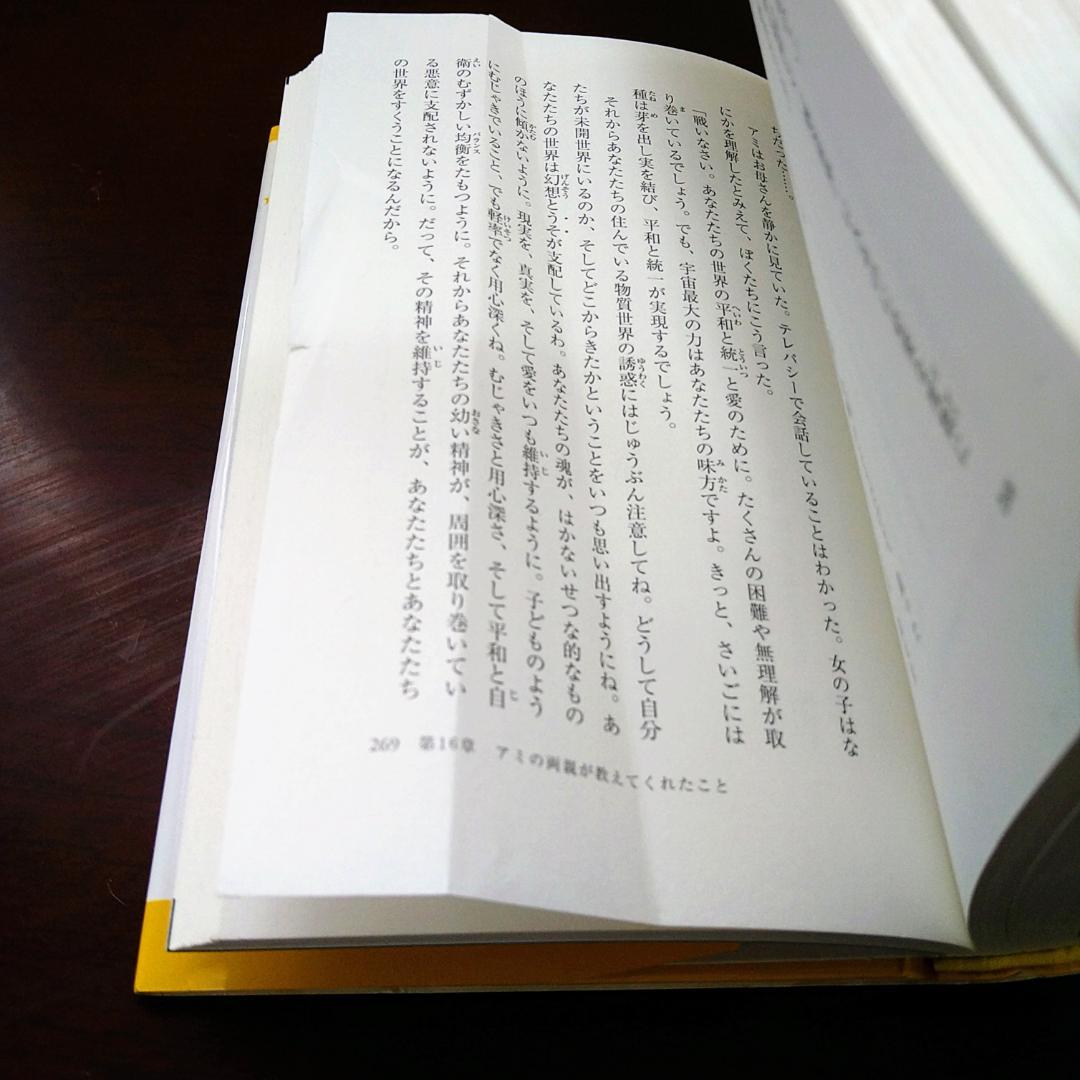 ちだった……。
アミはお母さんを静かに見ていた。テレパシーで会話していることはわかった。女の子はな
にかを理解したとみえて、ぼくたちにこう言った。
「戦いなさい。あなたたちの世界の平和と統一と愛のために。たくさんの困難や無理解が取
り巻いているでしょう。でも、宇宙最大の力はあなたたちの味方ですよ。きっと、さいごには
種は芽を出し実を結び、平和と統一が実現するでしょう。
それからあなたたちの住んでいる物質世界の誘惑にはじゅうぶん注意してね。どうして自分
たちが未開世界にいるのか、そしてどこからきたかということをいつも思い出すようにね。あ
なたたちの世界は幻想とうそが支配しているわ。あなたたちの魂が、はかないせつな的なもの
のほうに傾かないように。現実を、真実を、そして愛をいつも維持するように。子どものよう
にむじゃきでいること、でも軽率でなく用心深くね。むじゃきさと用心深さ、そして平和と自
衛のむずかしい均衡をたもつように。それからあなたたちの幼い精神が、周囲を取り巻いてい
る悪意に支配されないように。だって、その精神を維持することが、あなたたちとあなたたち
の世界をすくうことになるんだから。
269 第16章 アミの両親が教えてくれたこと